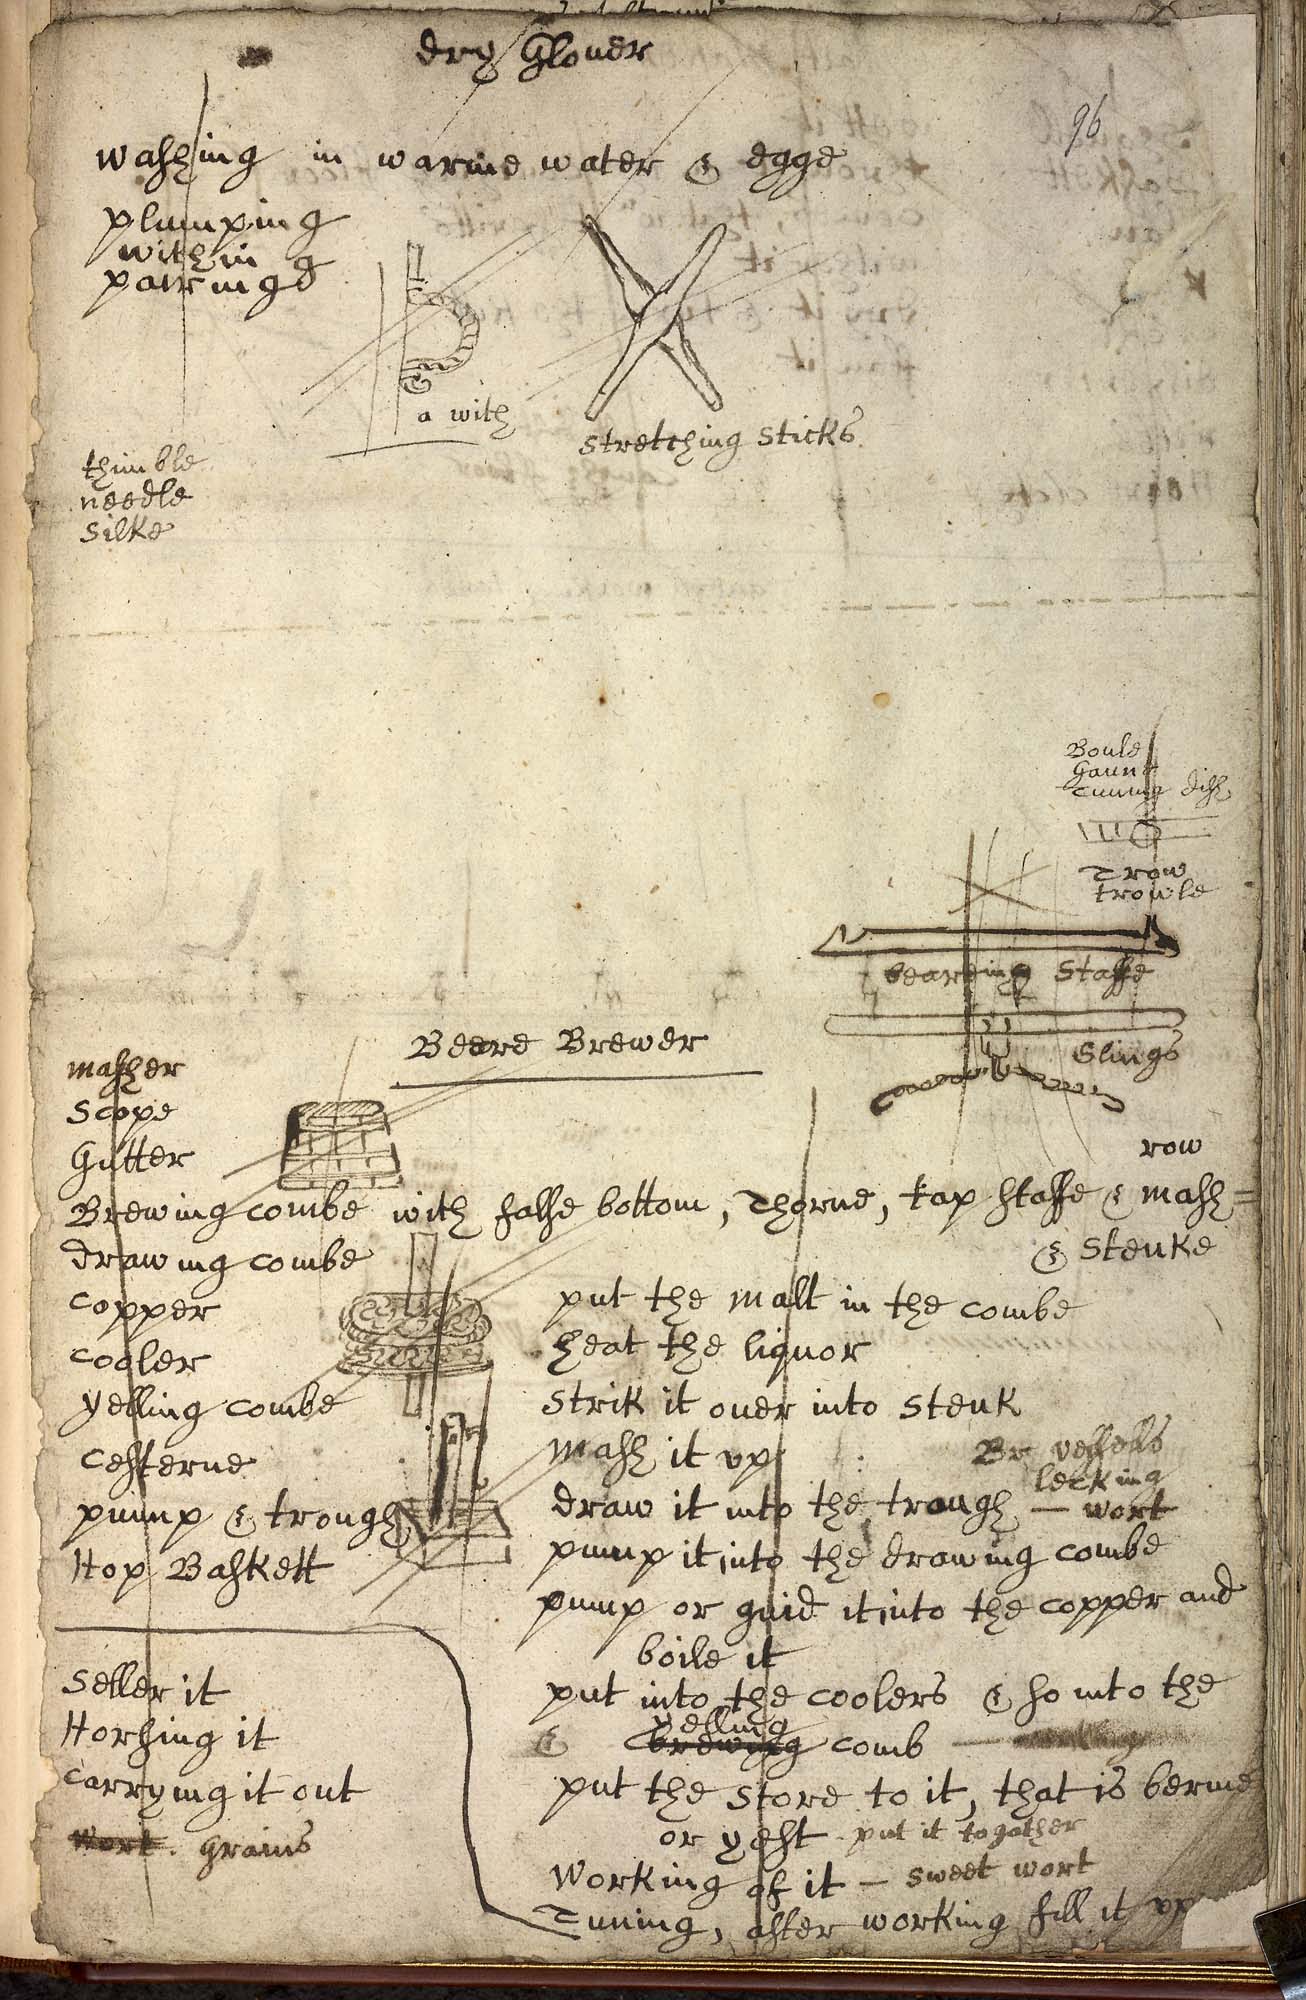 dry Glover
96
washing in warme water & egge
plumping
within
pairing
a with
stretching sticks
thimble
needle
silke
Boule
Gaun
tuning dish
Trow
trowle
bearing staffe
Slings
Beere Brewer
masher
scope
Gutter
row
Brewing combe with false bottom, Thorne, tap staffe & mash=
& Steuke
drawing combe
copper
cooler
yelling combe
cesterne
pump & trough
Hop Baskett
put the malt in the combe
heat the liquor
strik it ouer into steuk
mash it up
Br vessells
lecking
draw it into the trough — wort
pump it into the drawing combe
pump or guid it into the copper and
boile it
put into the coolers & so into the
yelling
& brewing comb —
put the store to it, that is berme
or yest put it togather
Working of it — sweet wort
Tuning, after working fill it up
Seller it
Horsing it
carrying it out
Wort. grains